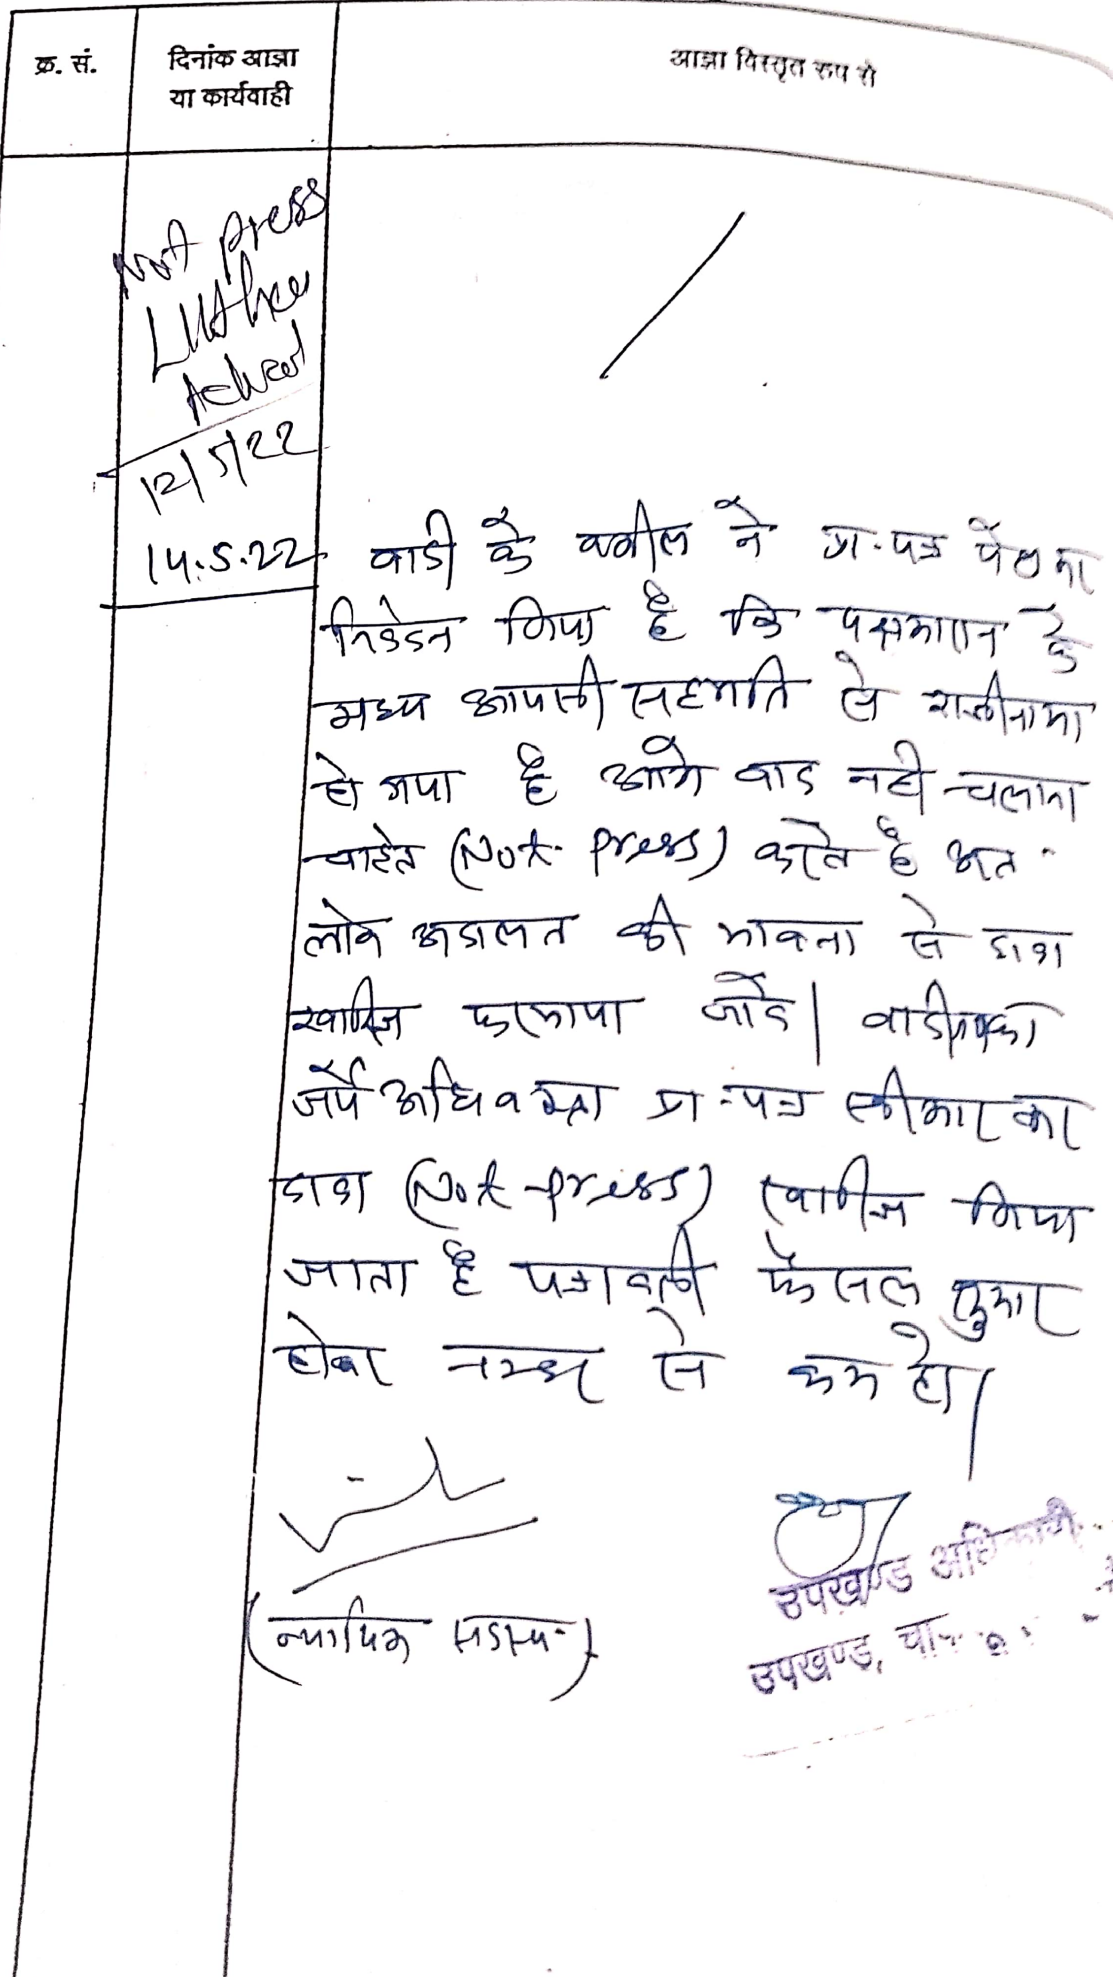 क्र. सं.
दिनांक आज्ञा
या कार्यवाही
आज्ञा विस्तृत रूप से
Not press
12/5/22
14.5.22
वादी के वकील ने प्रा.पत्र पेश कर
निवेदन किया है कि पक्षकारान के
मध्य आपसी सहमति से राजीनामा
हो गया है आगे वाद नही चलाना
चाहते (Not press) करते है अत
लोक अदालत की भावना से दावा
खारिज फरमाया जावे।
जर्ये अधिवक्ता प्रा-पत्र स्वीकार कर
दावा (Not press) खारिज किया
जाता है पत्रावली फैसल शुमार
होकर नम्बर से कम हो।
(न्यायिक सदस्य)
उपखण्ड अधिकारी
उपखण्ड,